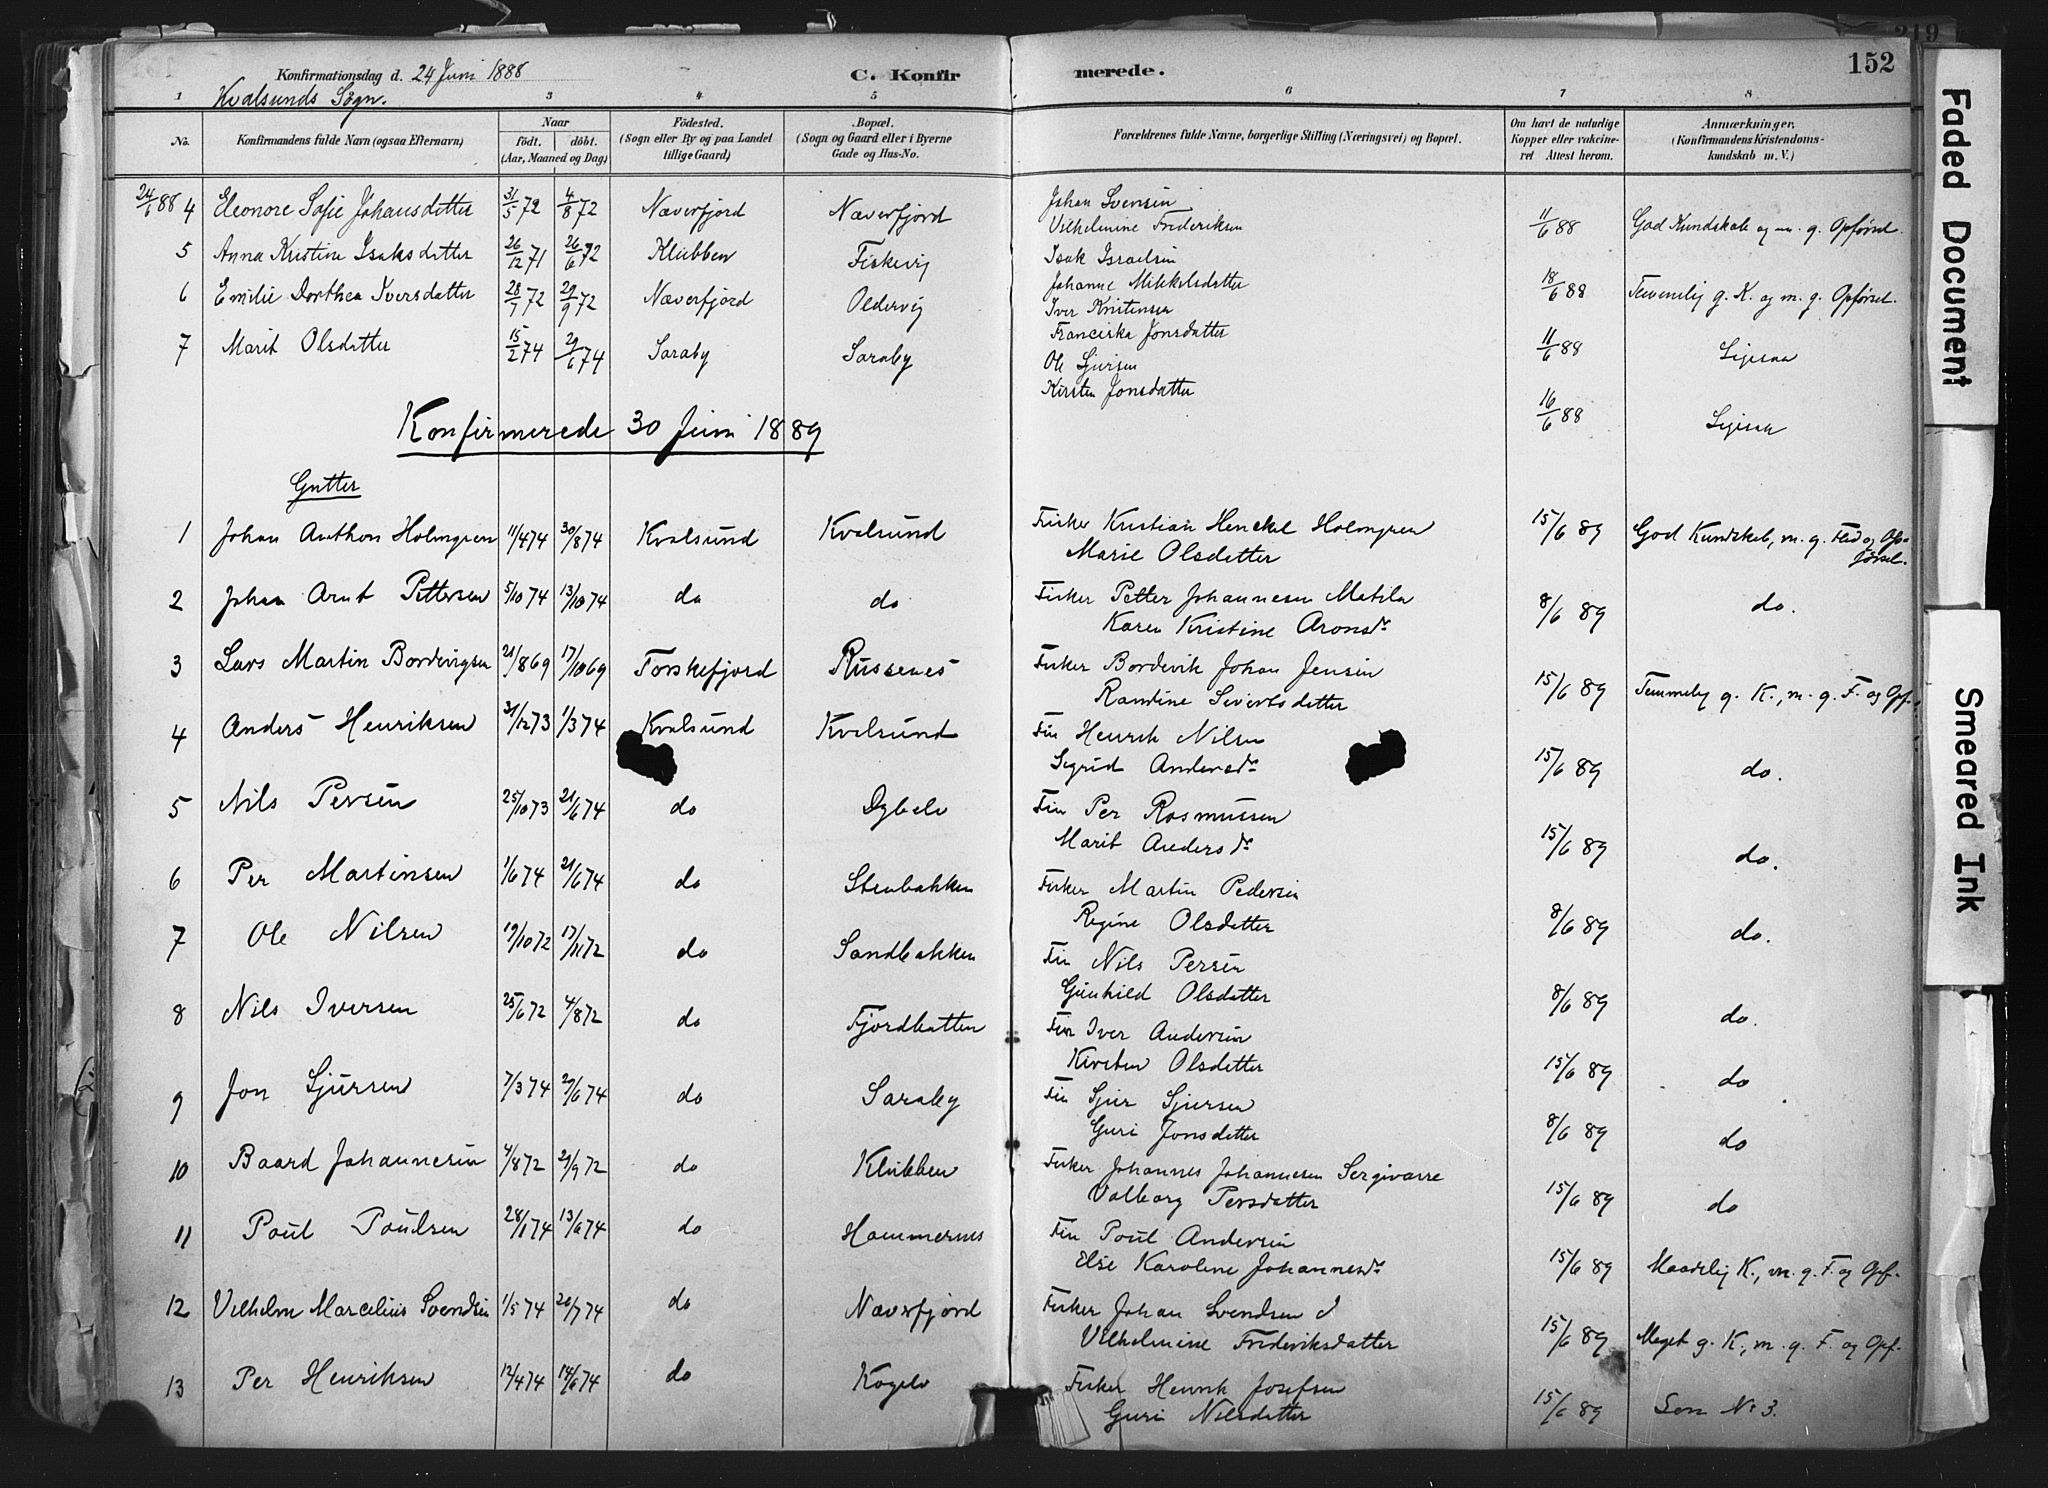 219
152
Konfirmationsdag d. 24 Juni 1888
C. Konfirmerede.
Kvalsunds Sogn.
1 3 4 5 6 7 8
No. Konfirmandens fulde Navn (ogsaa Efternavn) Naar født. døbt. (Aar, Maaned og Dag) Fødested. (Sogn eller By og paa Landet tillige Gaard) Bopæl. (Sogn og Gaard eller i Byerne Gade og Hus-No. Forældrenes fulde Navne, borgerlige Stilling (Næringsvei) og Bopæl. Om havt de naturlige Kopper eller vakcineret Attest herom. Anmærkninger. (Konfirmandens Kristendomskundskab m. V.)
24/6 88 4 Eleonore Sofie Johansdatter 31/5 72 4/8 72 Næverfjord Næverfjord Johan Svensen
Vilhelmine Frederiksen 11/6 88 God Kundskab og m. g. Opførsel.
5 Anna Kristine Isaksdatter 26/12 71 26/6 72 Klubben Fiskevig Isak Israelsen
Johanne Mikkelsdatter 18/6 88 Temmelig g. K. og m. g. Opførsel.
6 Emilie Dorthea Iversdatter 28/7 72 29/9 72 Næverfjord Oldervig Iver Kristensen
Franciska Jonsdatter 11/6 88 Ligesaa
7 Marit Olsdatter 15/2 74 29/6 74 Saraby Saraby Ole Sjursen
Kirsten Jonsdatter 16/6 88 Ligesaa
Konfirmerede 30 Juni 1889
Gutter
1 Johan Anthon Holmgren 11/4 74 30/8 74 Kvalsund Kvalsund Fisker Kristian Henckel Holmgren
Marie Olsdatter 15/6 89 God Kundskab, m. g. Flid og Opførsel.
2 Johan Arnt Pettersen 5/10 74 13/10 74 do do Fisker Petter Johannesen Matila
Karen Kristine Aronsdr 8/6 89 do.
3 Lars Martin Bordevigsen 21/8 69 17/10 69 Torskefjord Russenes Fisker Bordevik Johan Jensen
Randine Sivertsdatter 15/6 89 Temmelig g. K., m. g. F. og Opf.
4 Anders Henriksen 31/12 73 1/3 74 Kvalsund Kvalsund Fin Henrik Nilsen
Sigrid Andersdr 15/6 89 do.
5 Nils Persen 25/10 73 21/6 74 do Dybelv Fin Per Rasmussen
Marit Andersdr 15/6 89 do.
6 Per Martinsen 1/6 74 21/6 74 do Stenbakken Fisker Martin Pedersen
Regine Olsdatter 8/6 89 do.
7 Ole Nilsen 19/10 72 17/11 72 do Sandbakken Fin Nils Persen
Gunhild Olsdatter 8/6 89 do.
8 Nils Iversen 25/6 72 4/8 72 do Fjordbotten Fin Iver Andersen
Kirsten Olsdatter 15/6 89 do
9 Jon Sjursen 7/3 74 29/6 74 do Saraby Fin Sjur Sjursen
Guri Jonsdatter 8/6 89 do
10 Baard Johannesen 4/8 72 29/9 72 do Klubben Fisker Johannes Johannesen Sergivarre
Valborg Persdatter 15/6 89 do
11 Poul Poulsen 28/1 74 13/6 74 do Hammernes Fin Poul Andersen
Else Karoline Johannesdr 15/6 89 Maadelig K., m. g. F. og Opf.
12 Vilhelm Marcelius Svendsen 1/5 74 26/7 74 do Næverfjord Fisker Johan Svendsen
Vilhelmine Frideriksdatter 15/6 89 Meget g. K., m. g. F. og Opf.
13 Per Henriksen 12/4 74 14/6 74 do Kogelv Fisker Henrik Josefsen
Guri Nilsdatter 15/6 89 Som No 3.
Faded Document
Smeared Ink